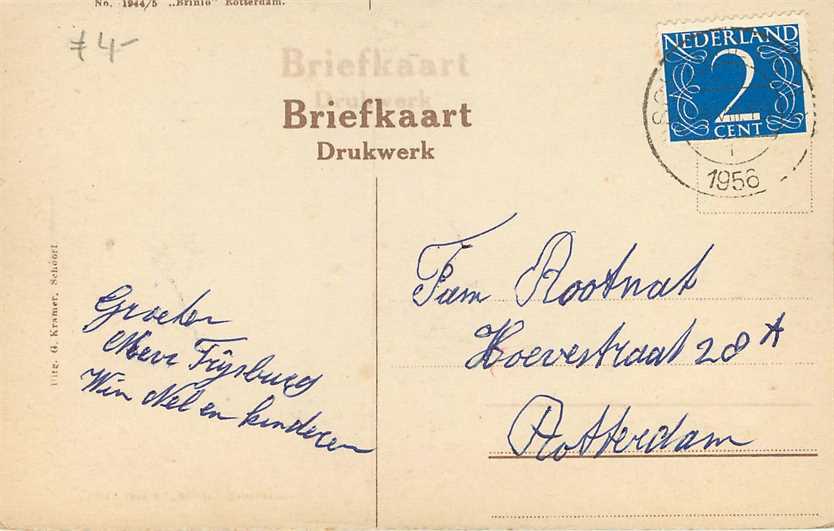 No. 1944/5 „Brinio" Rotterdam.
£ 4-
NEDERLAND
2
CENT
1956
Briefkaart
Drukwerk
Uitg. G. Kramer, Schoorl
Groeten
Mevr Fijsburg
Wim Nel en kinderen
Fam Rootnat
Hoevestraat 28 A
Rotterdam